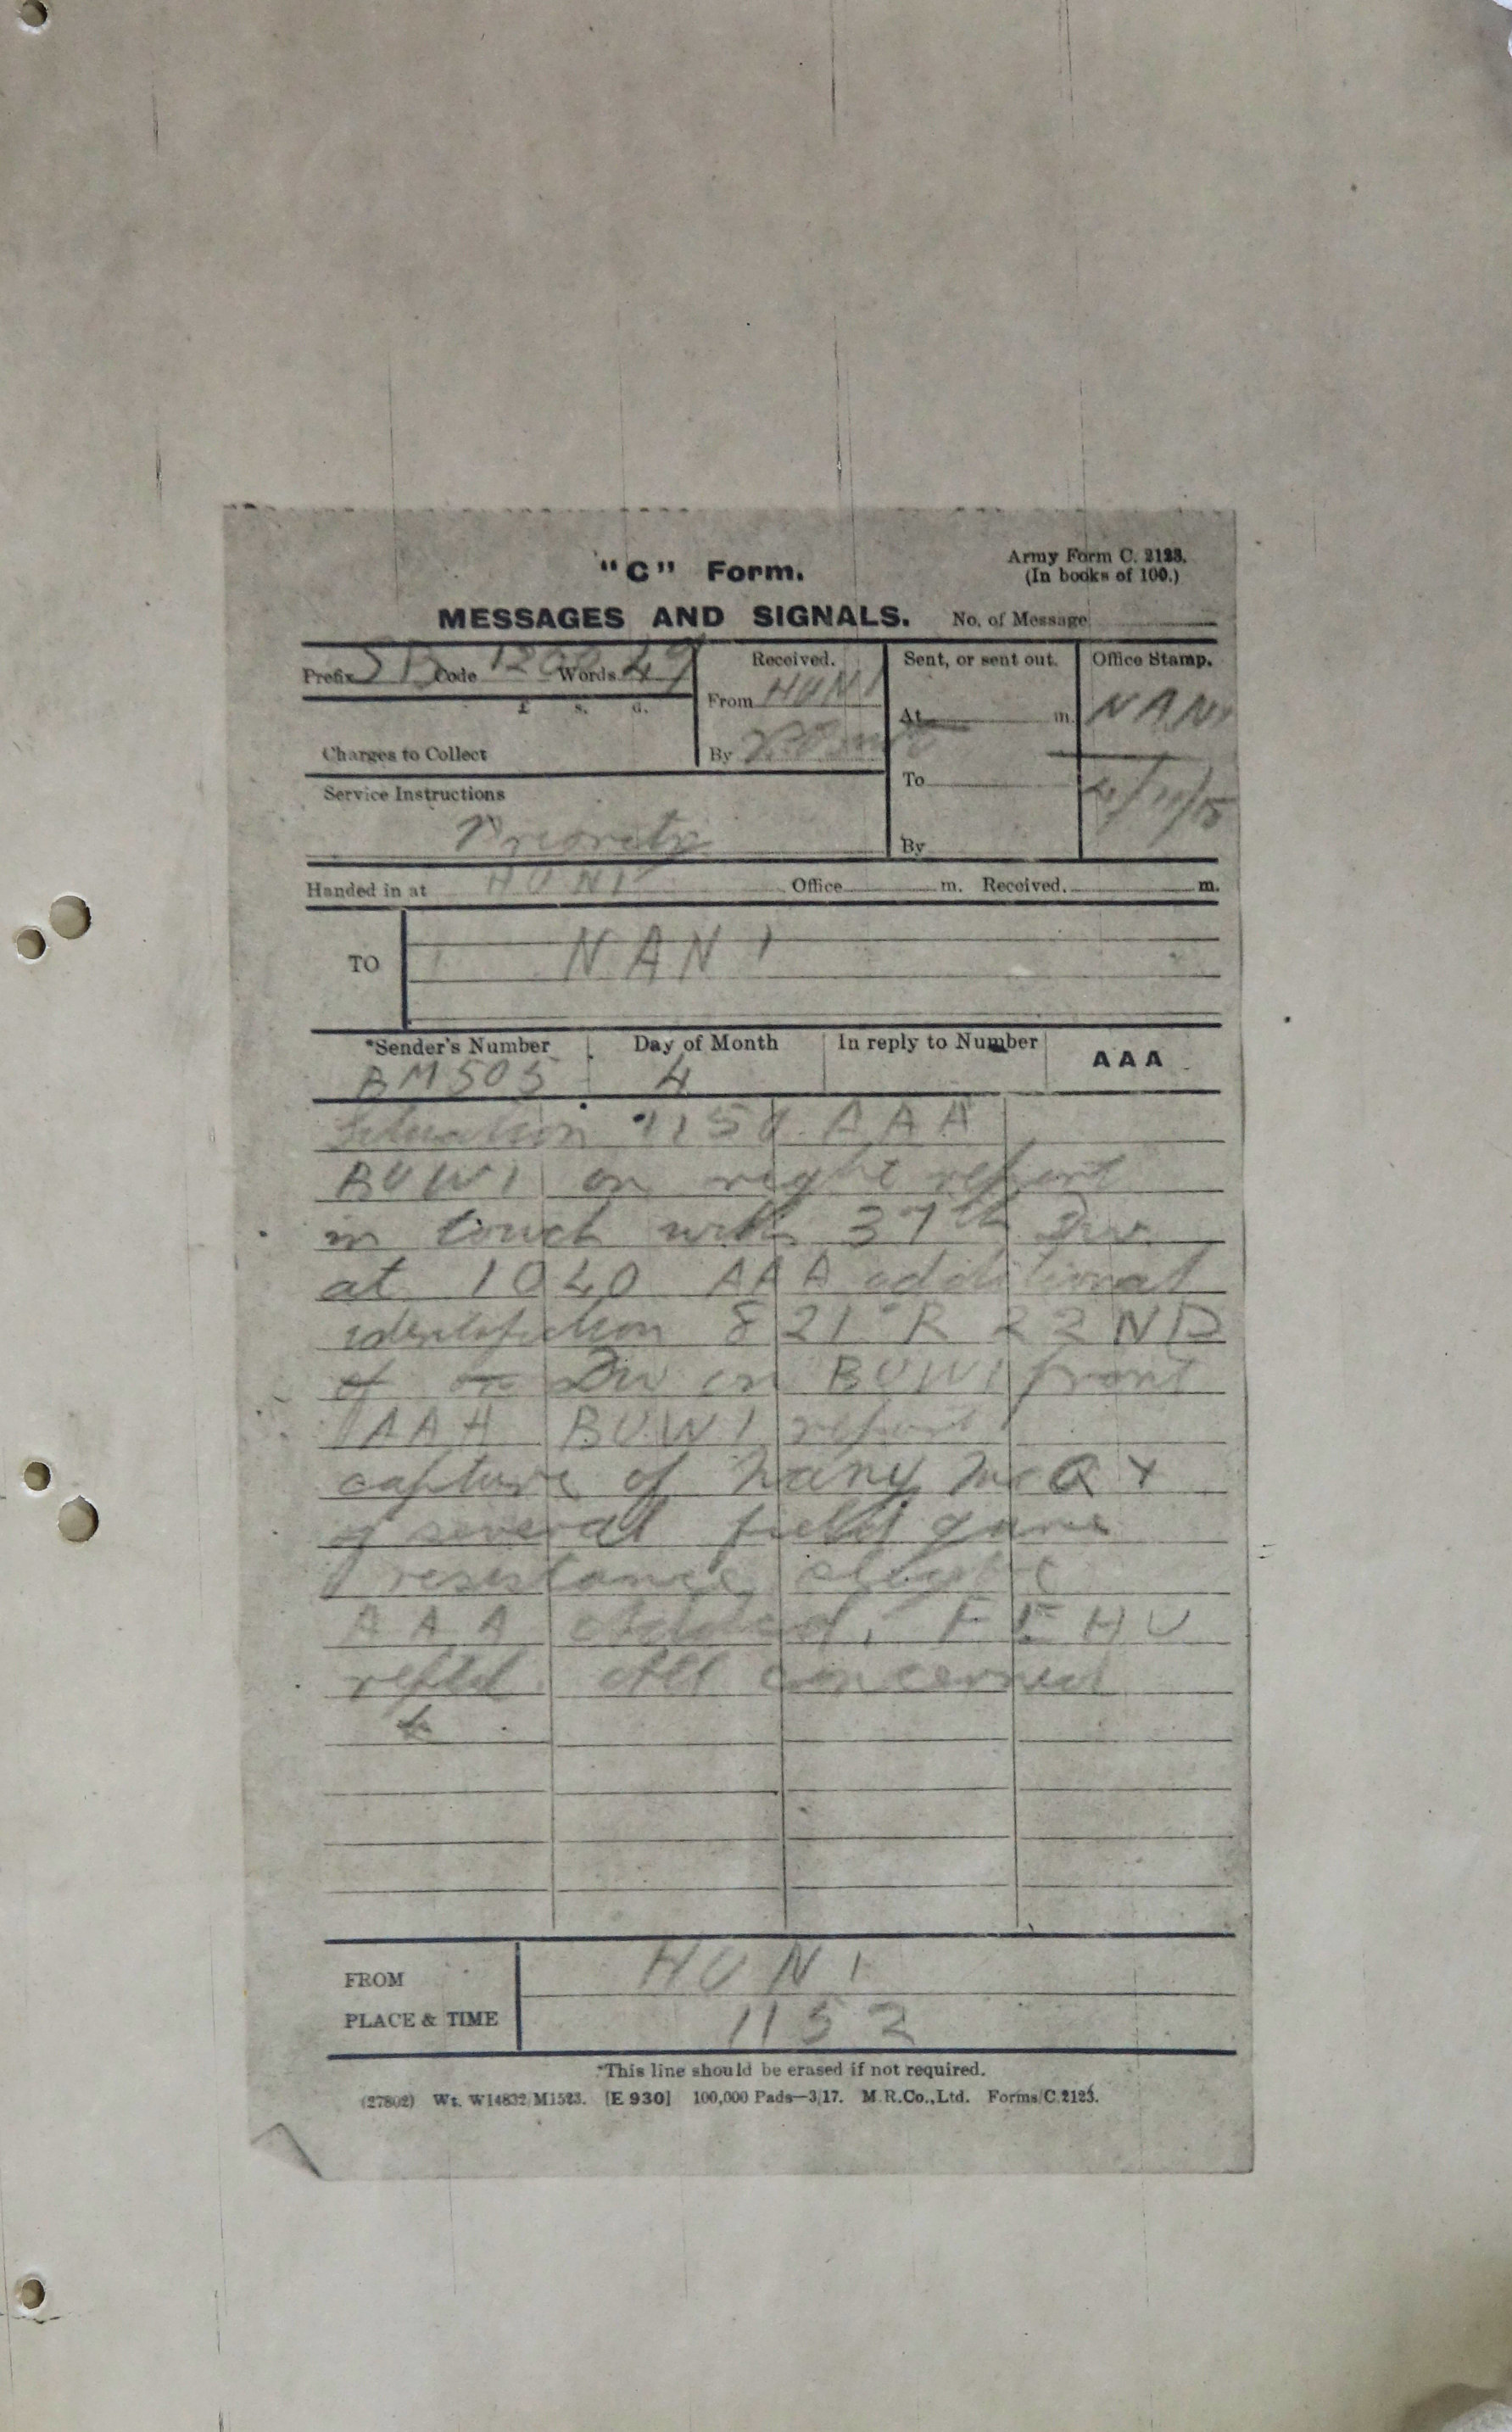 "C" Form.
Army Form C. 2123.
(In books of 100.)
MESSAGES AND SIGNALS.
No. of Message
Prefix SB Code 1200 Words 49
Received.
Sent, or sent out.
Office Stamp.
£ s. d.
From HUNI
At m.
NANI
Charges to Collect
By
To
4/11/18
Service Instructions
Priority
By
Handed in at HUNI Office m. Received. m.
TO
NANI
*Sender's Number
Day of Month
In reply to Number
AAA
BM505
4
Situation 1150 AAA
BUWI on right report
in touch with 37th Div
at 1040 AAA additional
identification 8 21 R 22ND
Div on BUWI front
AAA BUWI report
capture of many
several field guns
resistance slight
AAA Added. FEHU
reptd. All concerned
FROM
HUNI
PLACE & TIME
1152
*This line should be erased if not required.
(27802) Wt. W14832/M1523. [E 930] 100,000 Pads—3/17. M.R.Co.,Ltd. Forms/C.2123.